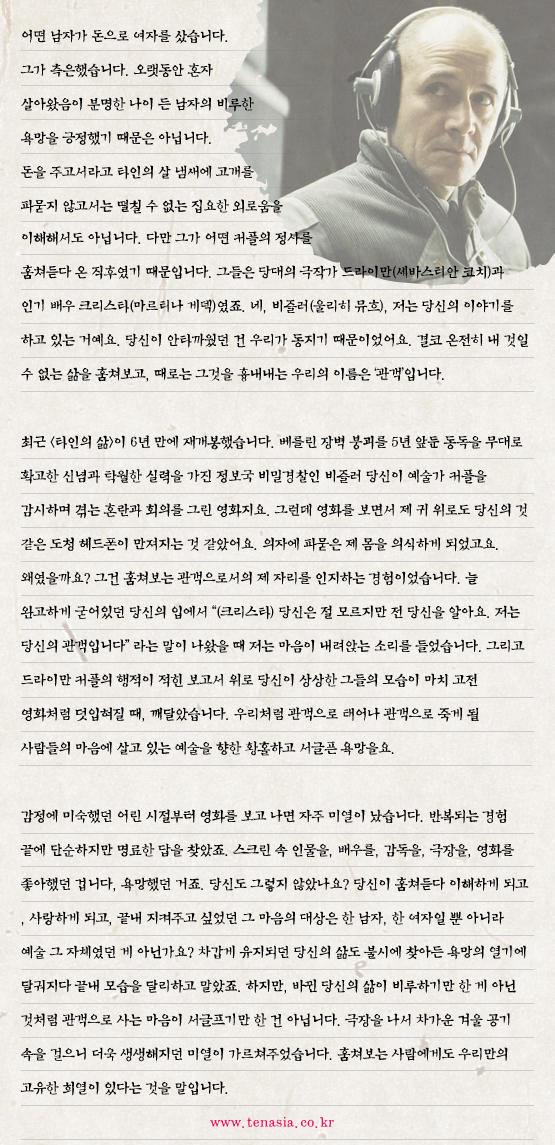 어떤 남자가 돈으로 여자를 샀습니다.
그가 측은했습니다. 오랫동안 혼자
살아왔음이 분명한 나이 든 남자의 비루한
욕망을 긍정했기 때문은 아닙니다.
돈을 주고서라고 타인의 살 냄새에 고개를
파묻지 않고서는 떨칠 수 없는 집요한 외로움을
이해해서도 아닙니다. 다만 그가 어떤 커플의 정사를
훔쳐듣다 온 직후였기 때문입니다. 그들은 당대의 극작가 드라이만(세바스티안 코치)과
인기 배우 크리스타(마르티나 게덱)였죠. 네, 비즐러(울리히 뮤흐), 저는 당신의 이야기를
하고 있는 거예요. 당신이 안타까웠던 건 우리가 동지기 때문이었어요. 결코 온전히 내 것일
수 없는 삶을 훔쳐보고, 때로는 그것을 흉내내는 우리의 이름은 ‘관객’입니다.
최근 <타인의 삶>이 6년 만에 재개봉했습니다. 베를린 장벽 붕괴를 5년 앞둔 동독을 무대로
확고한 신념과 탁월한 실력을 가진 정보국 비밀경찰인 비즐러 당신이 예술가 커플을
감시하며 겪는 혼란과 회의를 그린 영화지요. 그런데 영화를 보면서 제 귀 위로도 당신의 것
같은 도청 헤드폰이 만져지는 것 같았어요. 의자에 파묻은 제 몸을 의식하게 되었고요.
왜였을까요? 그건 훔쳐보는 관객으로서의 제 자리를 인지하는 경험이었습니다. 늘
완고하게 굳어있던 당신의 입에서 “(크리스타) 당신은 절 모르지만 전 당신을 알아요. 저는
당신의 관객입니다” 라는 말이 나왔을 때 저는 마음이 내려앉는 소리를 들었습니다. 그리고
드라이만 커플의 행적이 적힌 보고서 위로 당신이 상상한 그들의 모습이 마치 고전
영화처럼 덧입혀질 때, 깨달았습니다. 우리처럼 관객으로 태어나 관객으로 죽게 될
사람들의 마음에 살고 있는 예술을 향한 황홀하고 서글픈 욕망을요.
감정에 미숙했던 어린 시절부터 영화를 보고 나면 자주 미열이 났습니다. 반복되는 경험
끝에 단순하지만 명료한 답을 찾았죠. 스크린 속 인물을, 배우를, 감독을, 극장을, 영화를
좋아했던 겁니다, 욕망했던 거죠. 당신도 그렇지 않았나요? 당신이 훔쳐듣다 이해하게 되고
, 사랑하게 되고, 끝내 지켜주고 싶었던 그 마음의 대상은 한 남자, 한 여자일 뿐 아니라
예술 그 자체였던 게 아닌가요? 차갑게 유지되던 당신의 삶도 불시에 찾아든 욕망의 열기에
달궈지다 끝내 모습을 달리하고 말았죠. 하지만, 바뀐 당신의 삶이 비루하기만 한 게 아닌
것처럼 관객으로 사는 마음이 서글프기만 한 건 아닙니다. 극장을 나서 차가운 겨울 공기
속을 걸으니 더욱 생생해지던 미열이 가르쳐주었습니다. 훔쳐보는 사람에게도 우리만의
고유한 희열이 있다는 것을 말입니다.
www.tenasia.co.kr